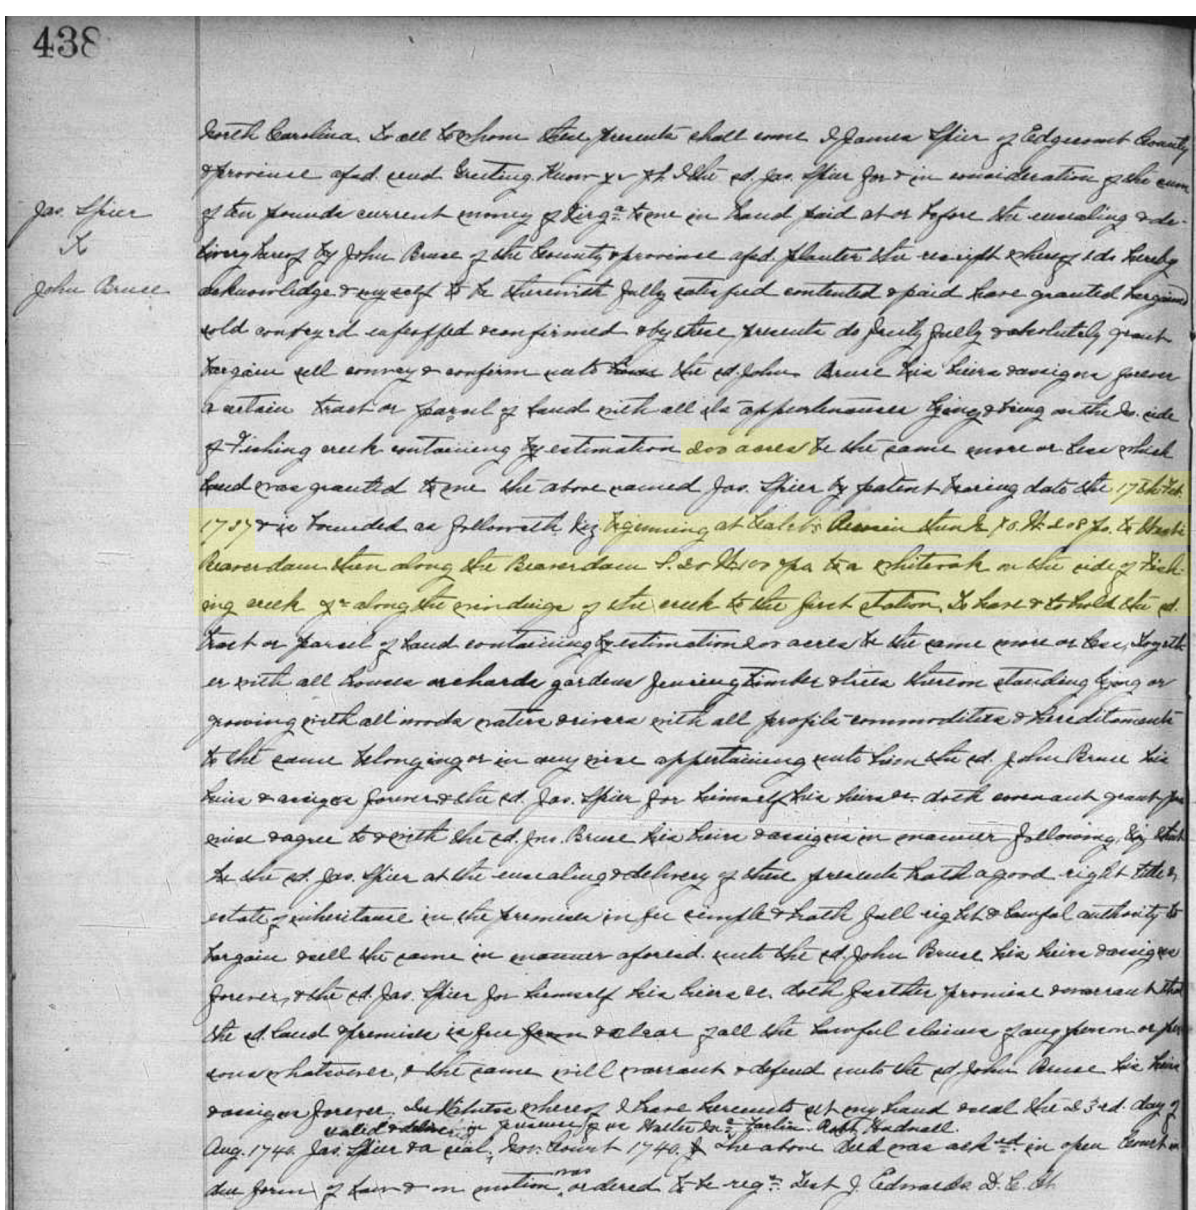 438
Jas. Spier
X
John Bruce
North Carolina. To all to whom these presents shall come I James Spier of Edgecomb County
& province afsd. send Greeting. Know ye yt. I the sd. Jas. Spier for & in consideration of the sum
of ten pounds current money of Virga. to me in hand paid at or before the ensealing & de-
livery hereof by John Bruce of the County & province afsd. planter the receipt whereof I do hereby
acknowledge & myself to be therewith fully satisfied contented & paid have granted bargained
sold conveyed enfeoffed & confirmed & by these presents do freely fully & absolutely grant
bargain sell convey & confirm unto the sd. John Bruce his heirs & assigns forever
a certain tract or parsel of land with all its appertenances lying & being on the So. side
of Fishing creek containing by estimation 200 acres be the same more or less which
land was granted to me the above named Jas. Spier by patent bearing date the 17th Feb.
1737 & is bounded as followeth. Viz. beginning at thence 208 po. to
Beaverdam then along the Beaverdam S. 20 W. 100 po. to a whiteoak on the side of Fish-
ing creek yn. along the windings of the creek to the first station. To have & to hold the sd.
tract or parsel of land containing by estimation 200 acres be the same more or less, togeth-
er with all houses orchards gardens fencing timber & trees thereon standing lying or
growing with all woods waters & rivers with all profits commodities & hereditaments
to the same belonging or in any wise appertaining unto him the sd. John Bruce his
heirs & assigns forever & the sd. Jas. Spier for himself his heirs &c. doth covenant grant pro
mise & agree to & with the sd. Jno. Bruce his heirs & assigns in manner following, Viz. that
he the sd. Jas. Spier at the ensealing & delivery of these presents hath a good right title &
estate of inheritance in the premises in fee simple & hath full right & lawful authority to
bargain & sell the same in manner aforesd. unto the sd. John Bruce his heirs & assigns
forever, & the sd. Jas. Spier for himself his heirs &c. doth further promise & warrant that
the sd. land & premises is free & clear of all the lawful claims of any person or per
sons whatsoever, & the same will warrant & defend unto the sd John Bruce his heirs
& assigns forever. In Witness whereof I have hereunto set my hand & seal the 23rd. day of
sealed & delivered in presence of us
Aug. 1740. Jas. Spier & a seal. Nov. Court 1740. The above deed was ackd. in open Court in
due form of law & on motion was ordered to be regd. Test J. Edwards D. C. Ct.